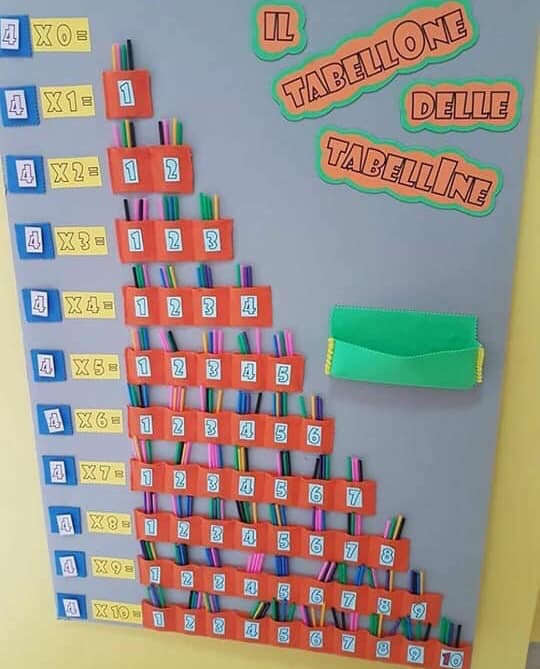 IL
TABELLONE
DELLE
TABELLINE
4 X0=
4 X1= 1
4 X2= 1 2
4 X3= 1 2 3
4 X4= 1 2 3 4
4 X5= 1 2 3 4 5
4 X6= 1 2 3 4 5 6
4 X7= 1 2 3 4 5 6 7
4 X8= 1 2 3 4 5 6 7 8
4 X9= 1 2 3 4 5 6 7 8 9
4 X10= 1 2 3 4 5 6 7 8 9 10